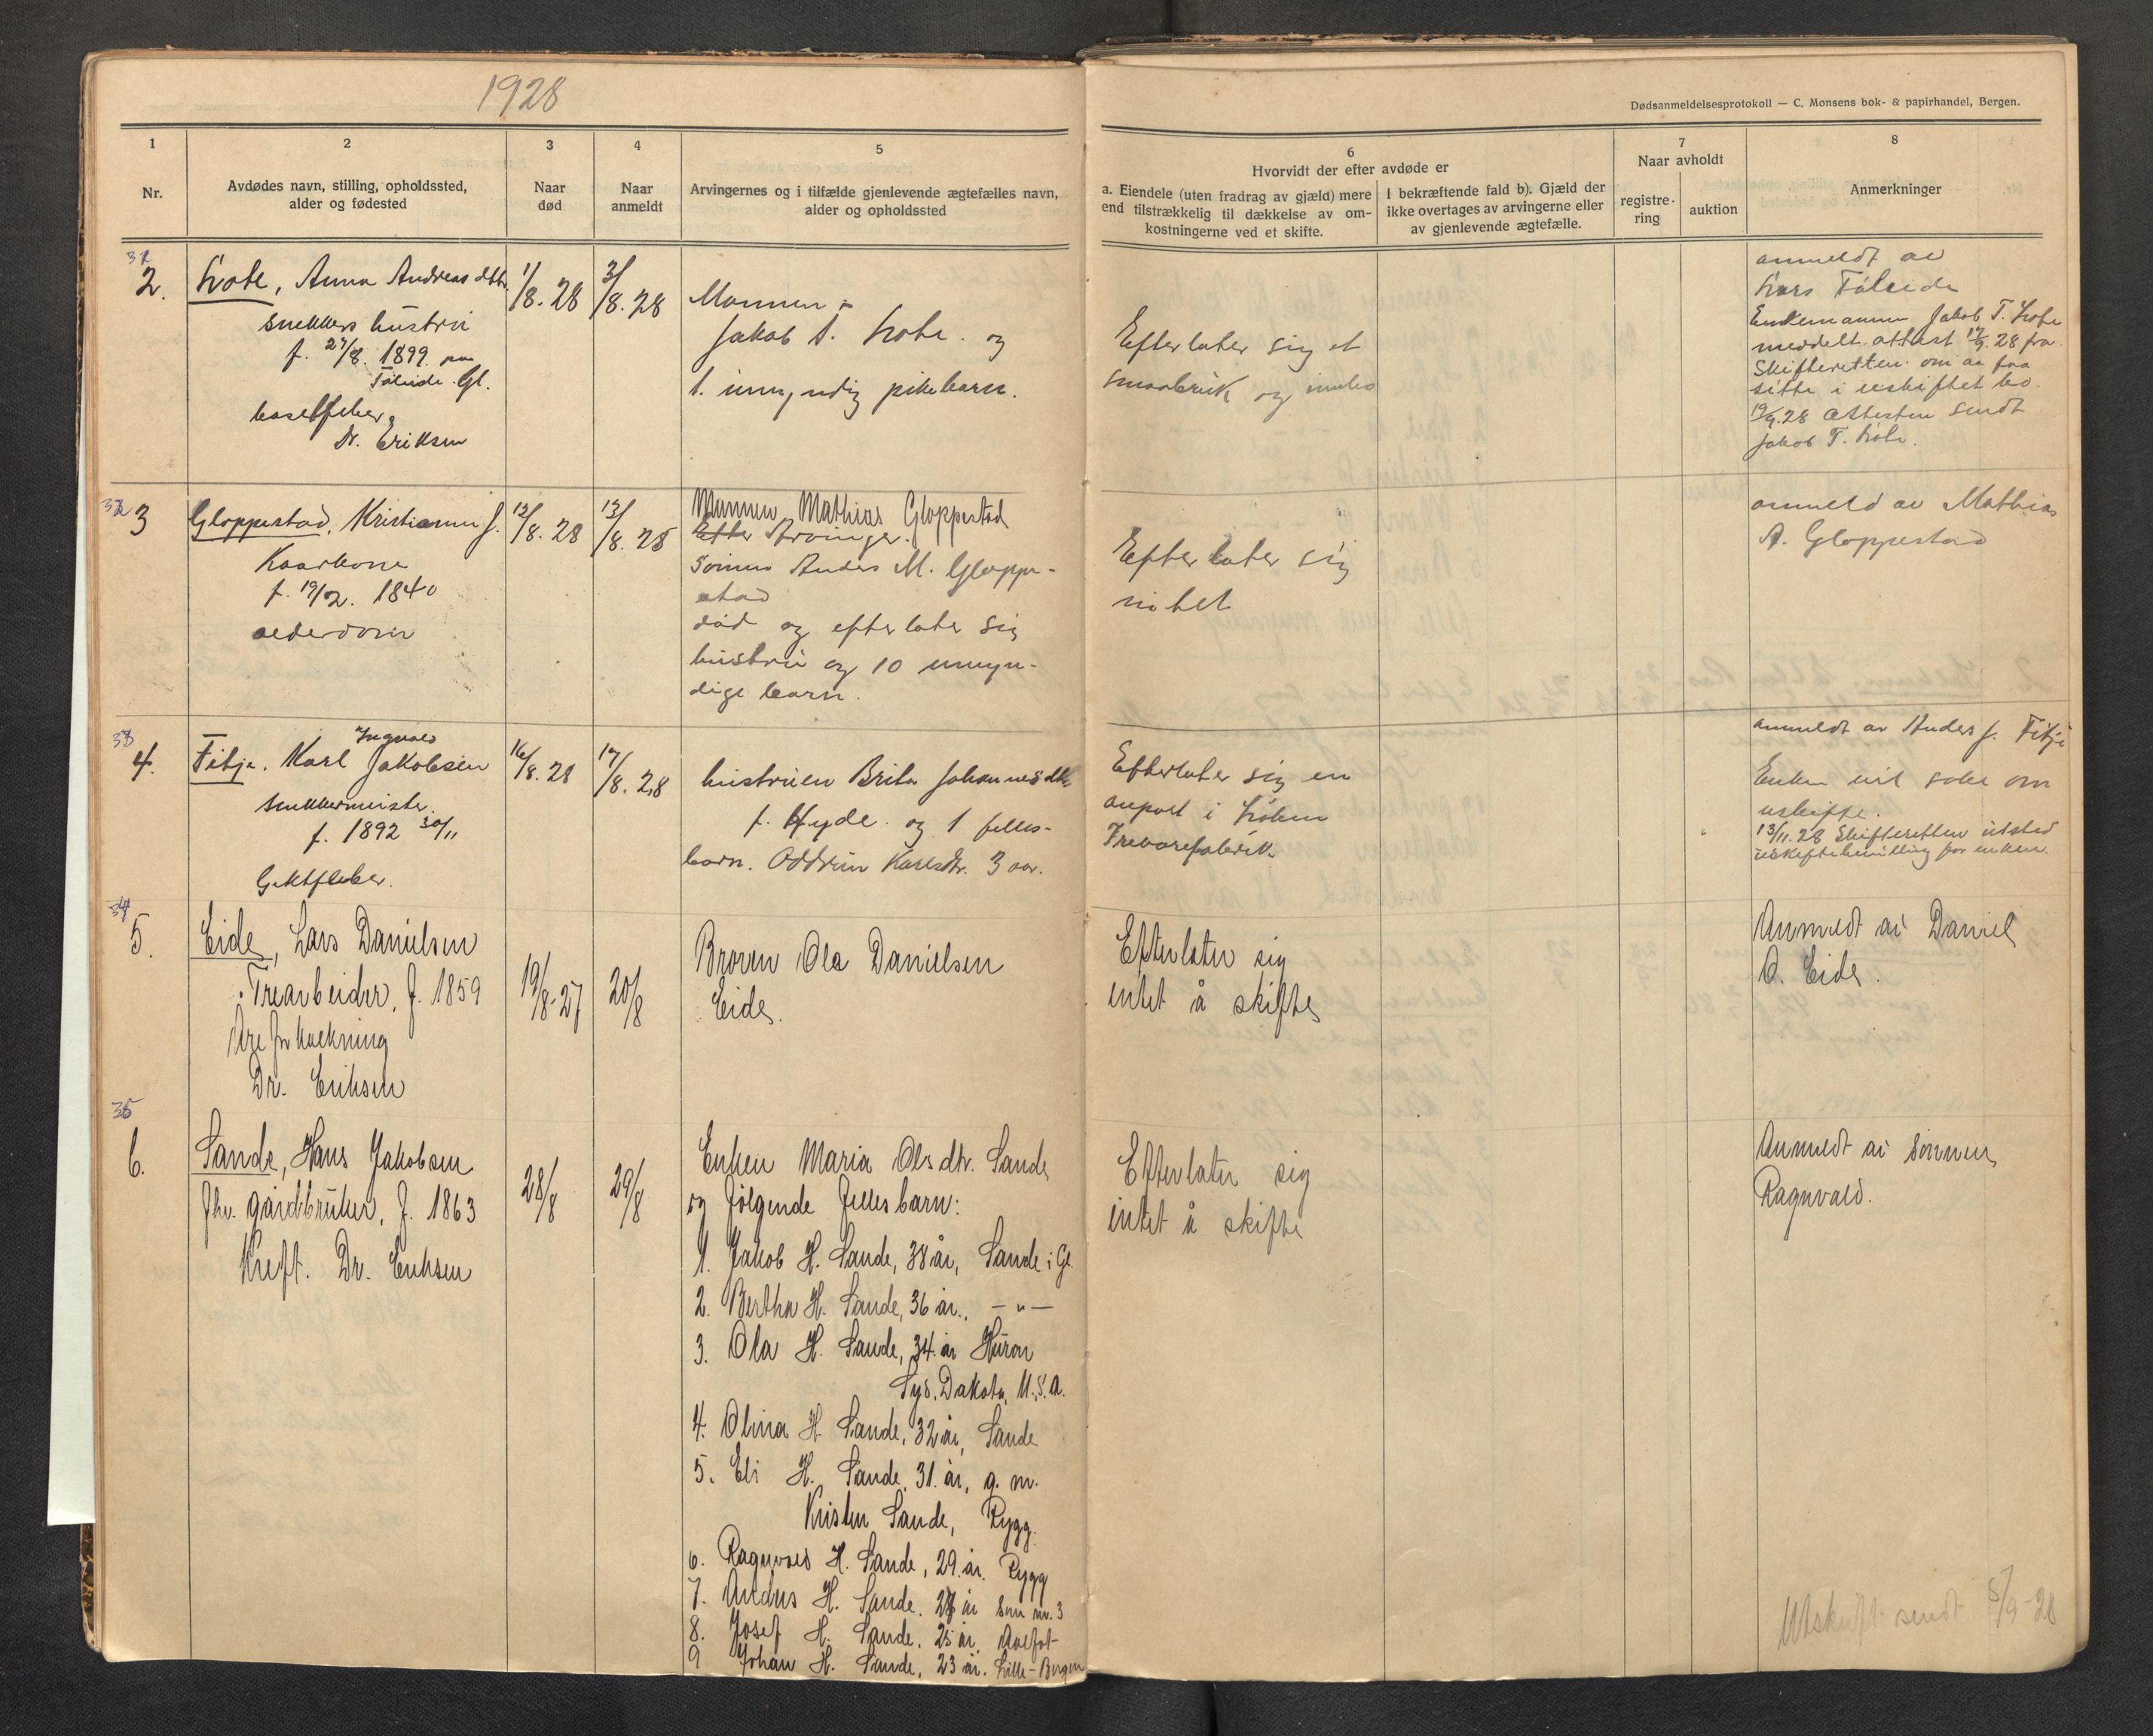 1928
Dødsanmeldelsesprotokoll — C. Monsens bok- & papirhandel, Bergen.
1
Nr.
2
Avdødes navn, stilling, opholdssted,
alder og fødested
3
Naar
død
4
Naar
anmeldt
5
Arvingernes og i tilfælde gjenlevende ægtefælles navn,
alder og opholdssted
6
Hvorvidt der efter avdøde er
a. Eiendele (uten fradrag av gjæld) mere
end tilstrækkelig til dækkelse av om-
kostningerne ved et skifte.
I bekræftende fald b). Gjæld der
ikke overtages av arvingerne eller
av gjenlevende ægtefælle.
7
Naar avholdt
registre-
ring
auktion
8
Anmerkninger
2.
Lote, Anna Andreasdtr.
snekkers hustru
f. 27/8. 1899 paa
Gl.
barselfeber
Dr. Eriksen
1/8. 28
3/8. 28
Mannen
Jakob T. Lote. og
1. umyndig pikebarn.
Efterlater sig et
smaabruk og innbo
anmeldt av
Lars
Enkemannen Jakob T. Lote
meddelt attest 17/9. 28 fra
Skifteretten om aa faa
sitte i uskiftet bo.
19/9. 28 Attesten sendt
Jakob T. Lote.
3
Gloppestad, Kristianna J.
Kaarkone
f. 19/2. 1840
alderdom
12/8. 28
13/8. 28
Mannen Mathias Gloppestad
Arvinger.
Sønnen Anders M. Gloppe-
stad
død og efterlater sig
hustru og 10 umyn-
dige barn.
Efterlater sig
intet
anmeld av Mathias
A. Gloppestad
38
4.
Ingvald
Fitje. Karl Jakobsen
snekkermester.
f. 1892 30/11
Giktfeber.
16/8. 28
17/8. 28
hustruen Brita Johannesdtr.
f. Hyde. og 1 felles-
barn. Oddrun Karlsdtr. 3 aar.
Efterlater sig en
anpart i Loten
Trevarefabrik
anmeldt av Anders J. Fitje
Enken vil søke om
uskifte.
13/11. 28 Skifteretten utsted
uskiftebevilling for enken.
34
5.
Eide, Lars Danielsen
Trearbeider, f. 1859
Åreforkalkning
Dr. Eriksen
19/8-27
20/8
Broren Ola Danielsen
Eide.
Efterlater sig
intet å skifte
Anmeldt av Daniel
O. Eide.
35
6.
Sande, Hans Jakobsen
fhv. gårdbruker, f. 1863
Kreft. Dr. Eriksen
28/8
29/8
Enken Maria Olsdtr. Sande
og følgende fellesbarn:
1. Jakob H. Sande, 38 år, Sande i Gl.
2. Bertha H. Sande, 36 år., — " —
3. Ola H. Sande, 34 år Huron
Syd. Dakota, U.S.A.
4. Olina H. Sande, 32 år, Sande
5. Eli H. Sande, 31. år, g. m.
Kristen Sande, Rygg.
6. Ragnvald H. Sande, 29. år. Rygg
7. Anders H. Sande. 27 år som nr. 3
8. Josef H. Sande, 25 år.
9 Johan H. Sande, 23 år. Lille-Bergen
Efterlater sig
intet å skifte
Anmeldt av sønnen
Ragnvald.
Utskrift sendt 5/9-28